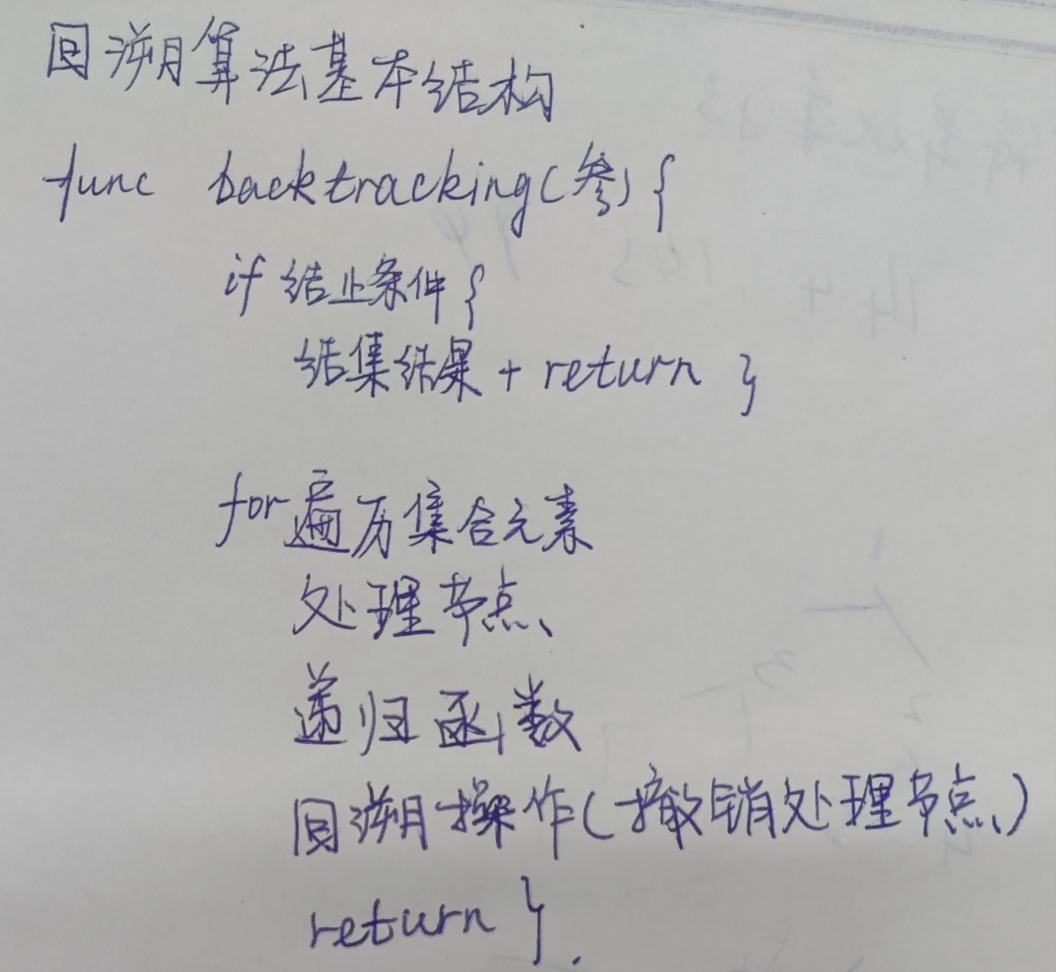 回溯算法基本结构
func backtracking(参){
if 结止条件{
结集结果 + return }
for 遍历集合元素
处理节点、
递归函数
回溯操作(撤销处理节点、)
return }.